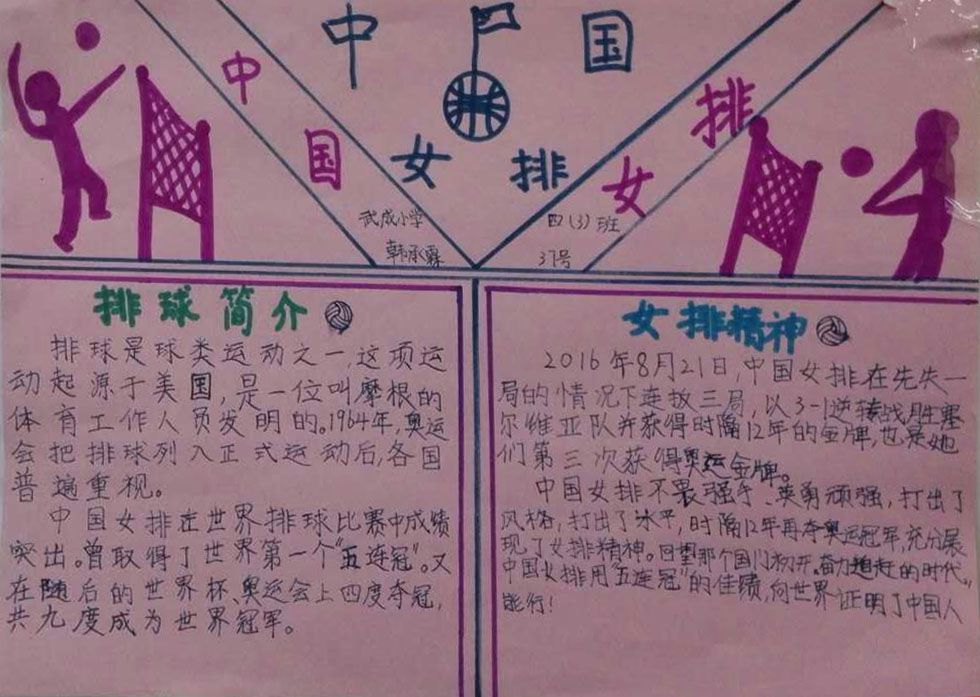 中国
女排
中国女排
武成小学
韩承霖
四(3)班
37号
排球简介
排球是球类运动之一,这项运
动起源于美国,是一位叫摩根的
体育工作人员发明的。1964年,奥运
会把排球列入正式运动后,各国
普遍重视。
中国女排在世界排球比赛中成绩
突出。曾取得了世界第一个"五连冠"。又
在随后的世界杯、奥运会上四度夺冠,
共九度成为世界冠军。
女排精神
2016年8月21日,中国女排在先失一
局的情况下连扳三局,以3-1逆转战胜塞
尔维亚队并获得时隔12年的金牌,也是她
们第三次获得奥运金牌。
中国女排不畏强手、英勇顽强,打出了
风格,打出了水平,时隔12年再夺奥运冠军,充分展
现了女排精神。回望那个国门初开、奋力追赶的时代,
中国女排用"五连冠"的佳绩,向世界证明了中国人
能行!